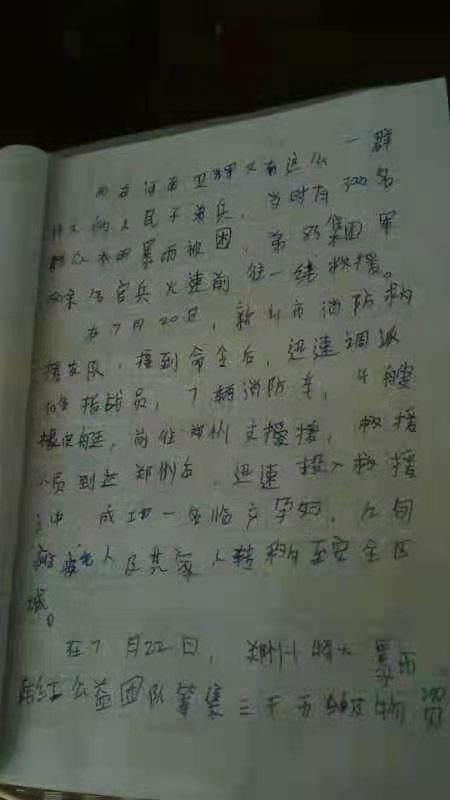 而在河南卫辉又有这么一群
伟大的人民子弟兵，当时有500名
群众因暴雨被困，第83集团军
官兵火速前往一线救援。
在7月20日，新州市消防救
援支队，接到命令后，迅速调派
指战员，7辆消防车，4艘
橡皮艇，前往郑州支援援，救援
人员到达郑州后，迅速投入救援
之中，成功一名临产孕妇，八旬
老人及其家人转移至安全区
域。
在7月22日，郑州特大暴雨
公益团队筹集三千万物资